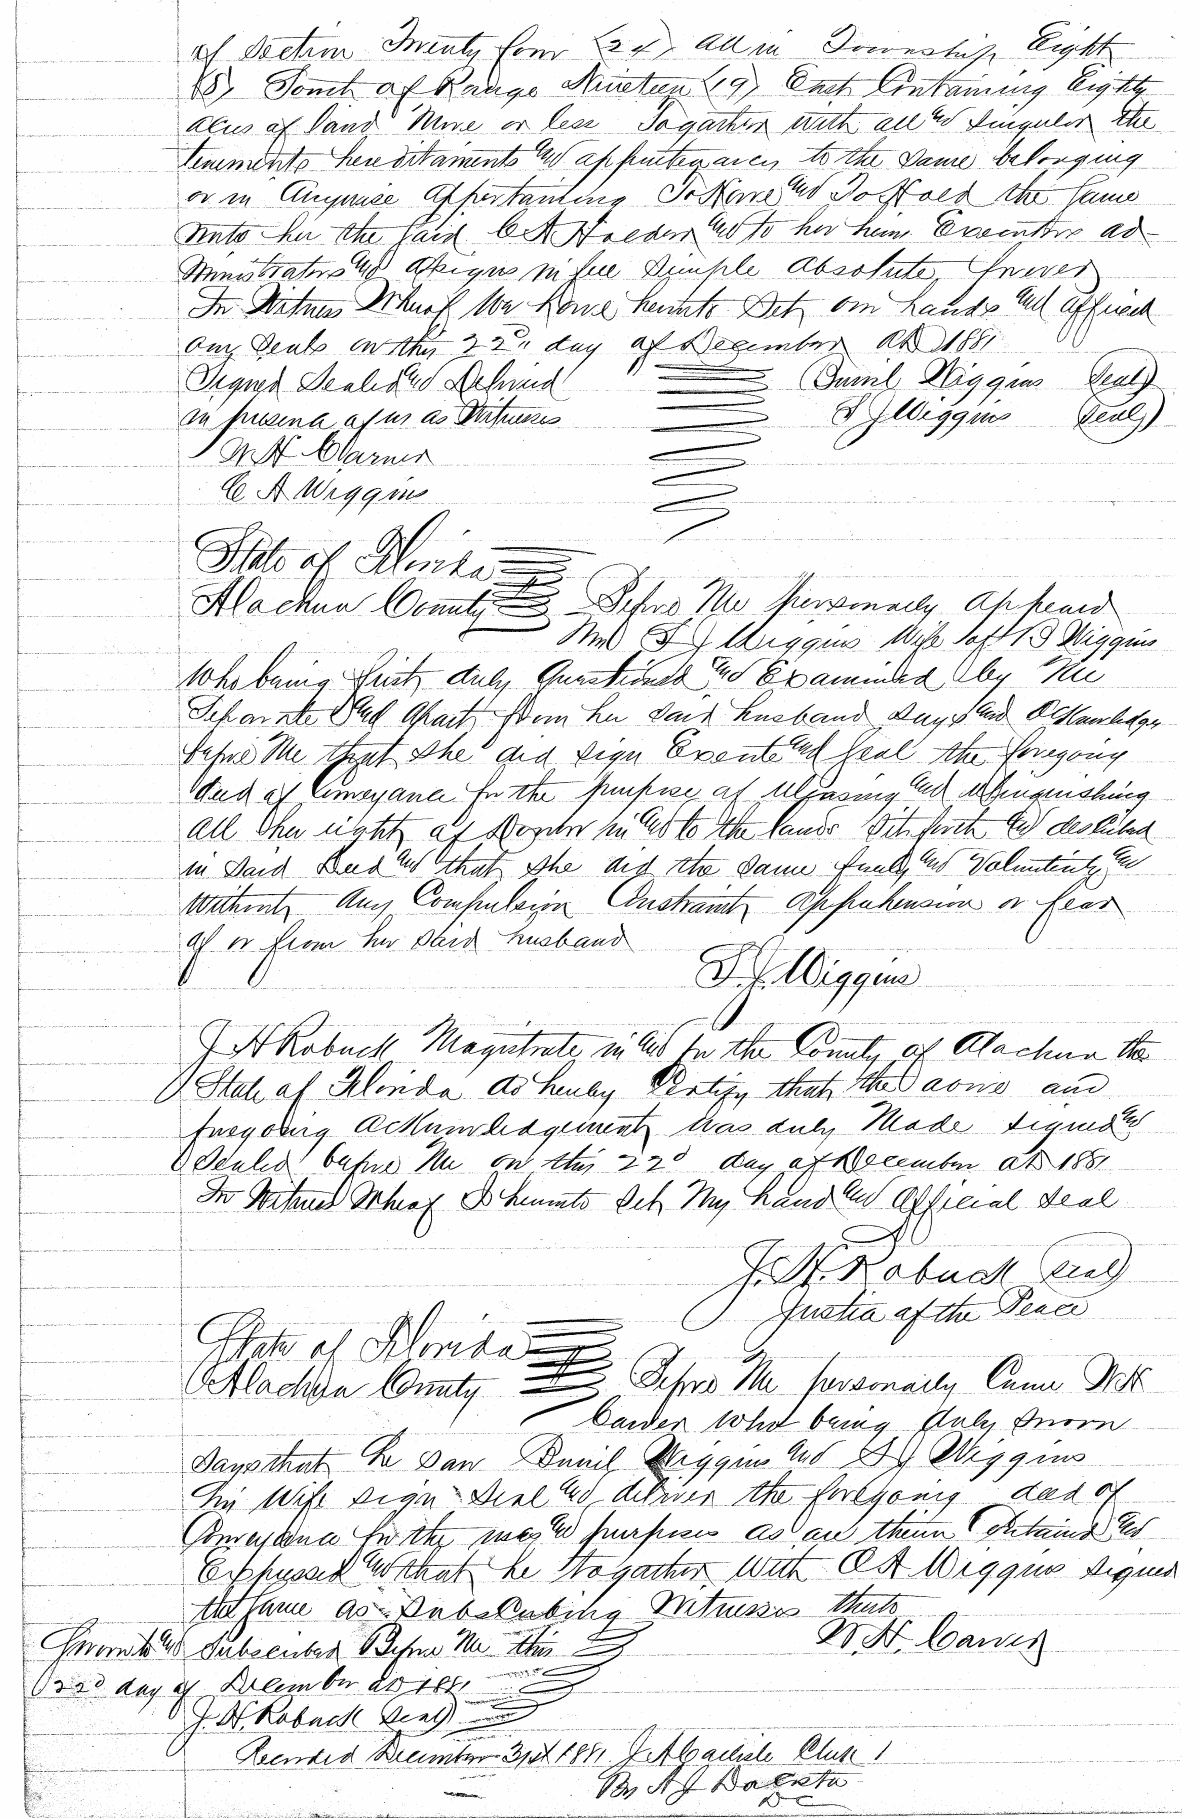 of Section Twenty four (24) all in Township Eight
(8) South of Range Nineteen (19) East Containing Eighty
acres of land More or less Togather with all and Singular the
tenements hereditaments and appurtenances to the Same belonging
or in Anywise Appertaining To Have and To Hold the Same
unto her the Said C A Holder and to her heirs Executors ad-
ministrators and Assigns in fee Simple Absolute forever
In Witness Wherof We have hereunto Set our hands and affixed
our Seals on this 22d day of December AD 1881
Signed Sealed and Delivered Wiggins Seal)
in presence of us as Witnesses S J Wiggins Seal)
W H
C A Wiggins
State of Florida
Alachua County Before Me personaily Appeard
Mrs S J Wiggins Wife of Wiggins
Who being first duly Questioned and Examinded by Me
Separate and Apart from her Said husband Says and Acknowledge
before Me that She did Sign Execute and Seal the foregoing
deed of Conveyance for the purpose of releasing and relinquishing
all her right of Dower in and to the lands Set forth and described
in Said Deed and that She did the Same freely and Voluntirily and
without Any Compulsion Constraint Apprehension or fear
of or from her Said husband
S. J. Wiggins
J H Robuck Magistrate in and for the County of Alachua the
State of Florida do hereby Certify that the above and
foregoing Acknowledgement was duly Made Signed and
Sealed before Me on this 22d day of December AD 1881
In Witness Wherof I hereunto Set My hand and Official Seal
J. H. Robuck Seal
Justice of the Peace
State of Florida
Alachua County Before Me personaily Came W H
Carver Who being duly Sworn
Says that he Saw Wiggins and S J Wiggins
his Wife Sign Seal and deliver the foregoing deed of
Conveyance for the uses and purposes as are therin Contained and
Expressed and that he togather With C A Wiggins Signed
the Same as Subscribing Witnesses therto
Sworn to and Subscribed Before Me this W. H. Carver
22d day of December AD 1881
J. H. Robuck Seal
Recorded December 31st 1881 Clerk
By A J
DC